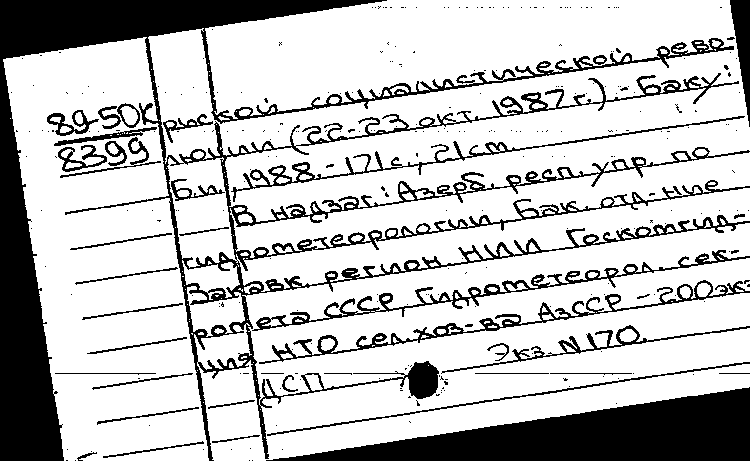 89-50К
8399
рьской социалистической рево-
люции (22-23 окт. 1987 г.).- Баку:
Б.и., 1988.- 171 с.; 21 см.
В надзаг.: Азерб. респ. упр. по
гидрометеорологии, Бак. отд-ние
Закавк. регион НИИ Госкомгид-
ромета СССР, Гидрометеорол. сек-
ция НТО сел. хоз-ва АзССР - 200 экз
Экз. N 170.
ДСП